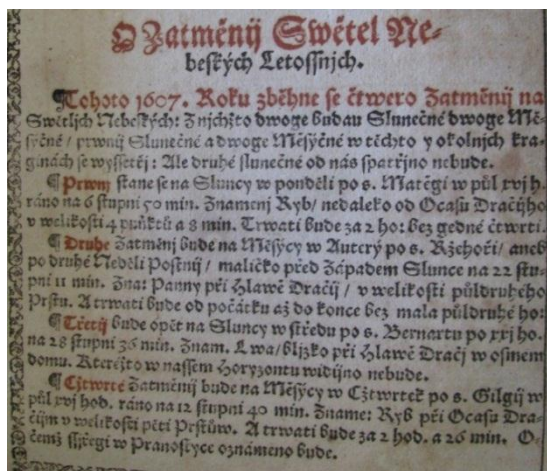 O Zatměnij Swětel Ne-
beských Letossnjch.
¶Tohoto 1607. Roku zběhne se čtwero Zatměnij na
Swětljch Nebeských: Z nichžto dwoge budau Slunečné dwoge Mě-
syčné / prwnij Slunečné a dwoge Měsyčné w těchto y okolnjch kra-
ginách se wyssetěj: Ale druhé slunečné od nás spatřjno nebude.
¶ Prwnj stane se na Sluncy w ponděli po s. Matěgi w půl xvj h.
ráno na 6 stupni 50 min. Znamenj Ryb / nedaleko od Ocasu Dračijho
v welikosti 4 punktů a 8 min. Trwati bude za 2 ho: bez gedné čtwrti.
¶ Druhé Zatměnj bude na Měsýcy w Auterý po s. Ržehoři / aneb
po druhé Neděli Postnij / maličko před Západem Slunce na 22 stu-
pni 11 min. Zna: Panny při Hlawě Dračij / v welikosti půldruhého
Prstu. A trwati bude od počátku až do konce bez mala půldruhé ho:
¶ Třetij bude opět na Sluncy w středu po s. Bernartu po xxj ho.
na 28 stupni 36 min. Znam. Lwa / bljzko při Hlawě Dračj w osmém
domu. Kteréžto w nassem Horyzontu widijno nebude.
¶ Cžtwrté Zatměnij bude na Měsýcy w Cžtwrtek po s. Gilgij w
půl xvj hod. ráno na 12 stupni 40 min. Zname: Ryb při Ocasu Dra-
čijm v welikosti pěti Prstůw. A trwati bude za 2 hod. a 26 min. O
čemž ssýřegi w Pranostyce oznámeno bude.